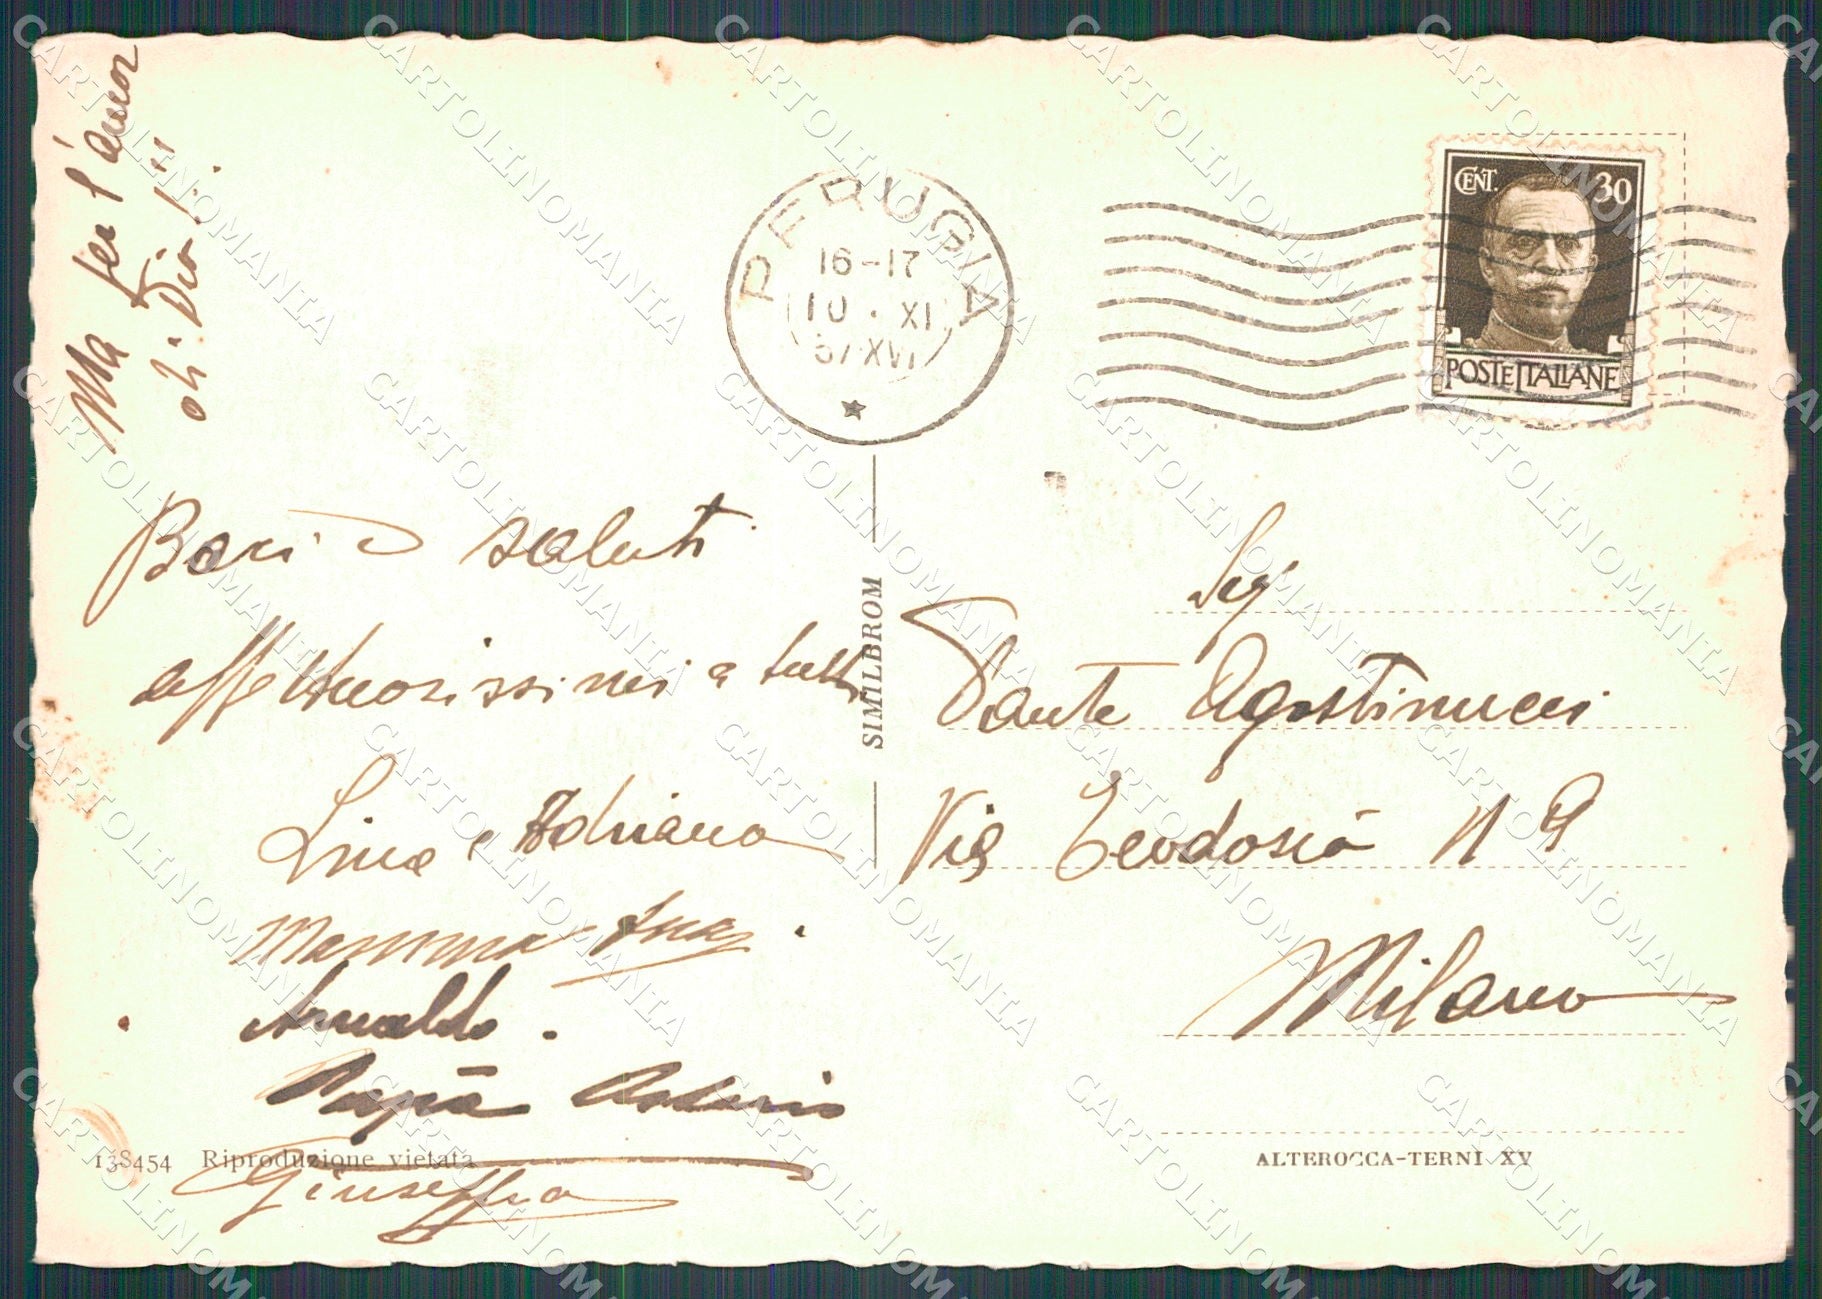 Ma per l'amor
di Dio!!!
PERUGIA
16-17
10 · XI
37·XVI
CENT. 30
POSTE ITALIANE
Baci e saluti
affettuosissimi a tutti
Lina e Adriana
Mamma
Arnaldo.
Papà
Giuseppina
138454 Riproduzione vietata
SIMILBROM
Sig
Dante Agostinucci
Via Teodosio N 9
Milano
ALTEROCCA-TERNI XV
CARTOLINOMANIA